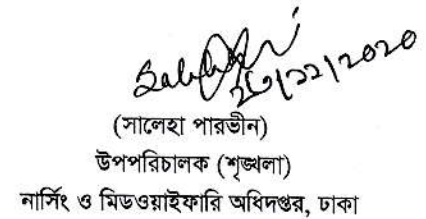 (সালেহা পারভীন)
উপপরিচালক (শৃঙ্খলা)
নার্সিং ও মিডওয়াইফারি অধিদপ্তর, ঢাকা